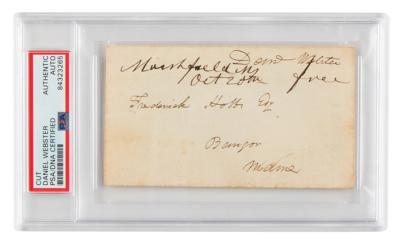 CUT
DANIEL WEBSTER
PSA/DNA CERTIFIED
AUTHENTIC
AUTO
84323265
PSA
Marshfield Ms
Oct 20th
Danl Webster
free
Frederick Hobbs Esq
Bangor
Maine